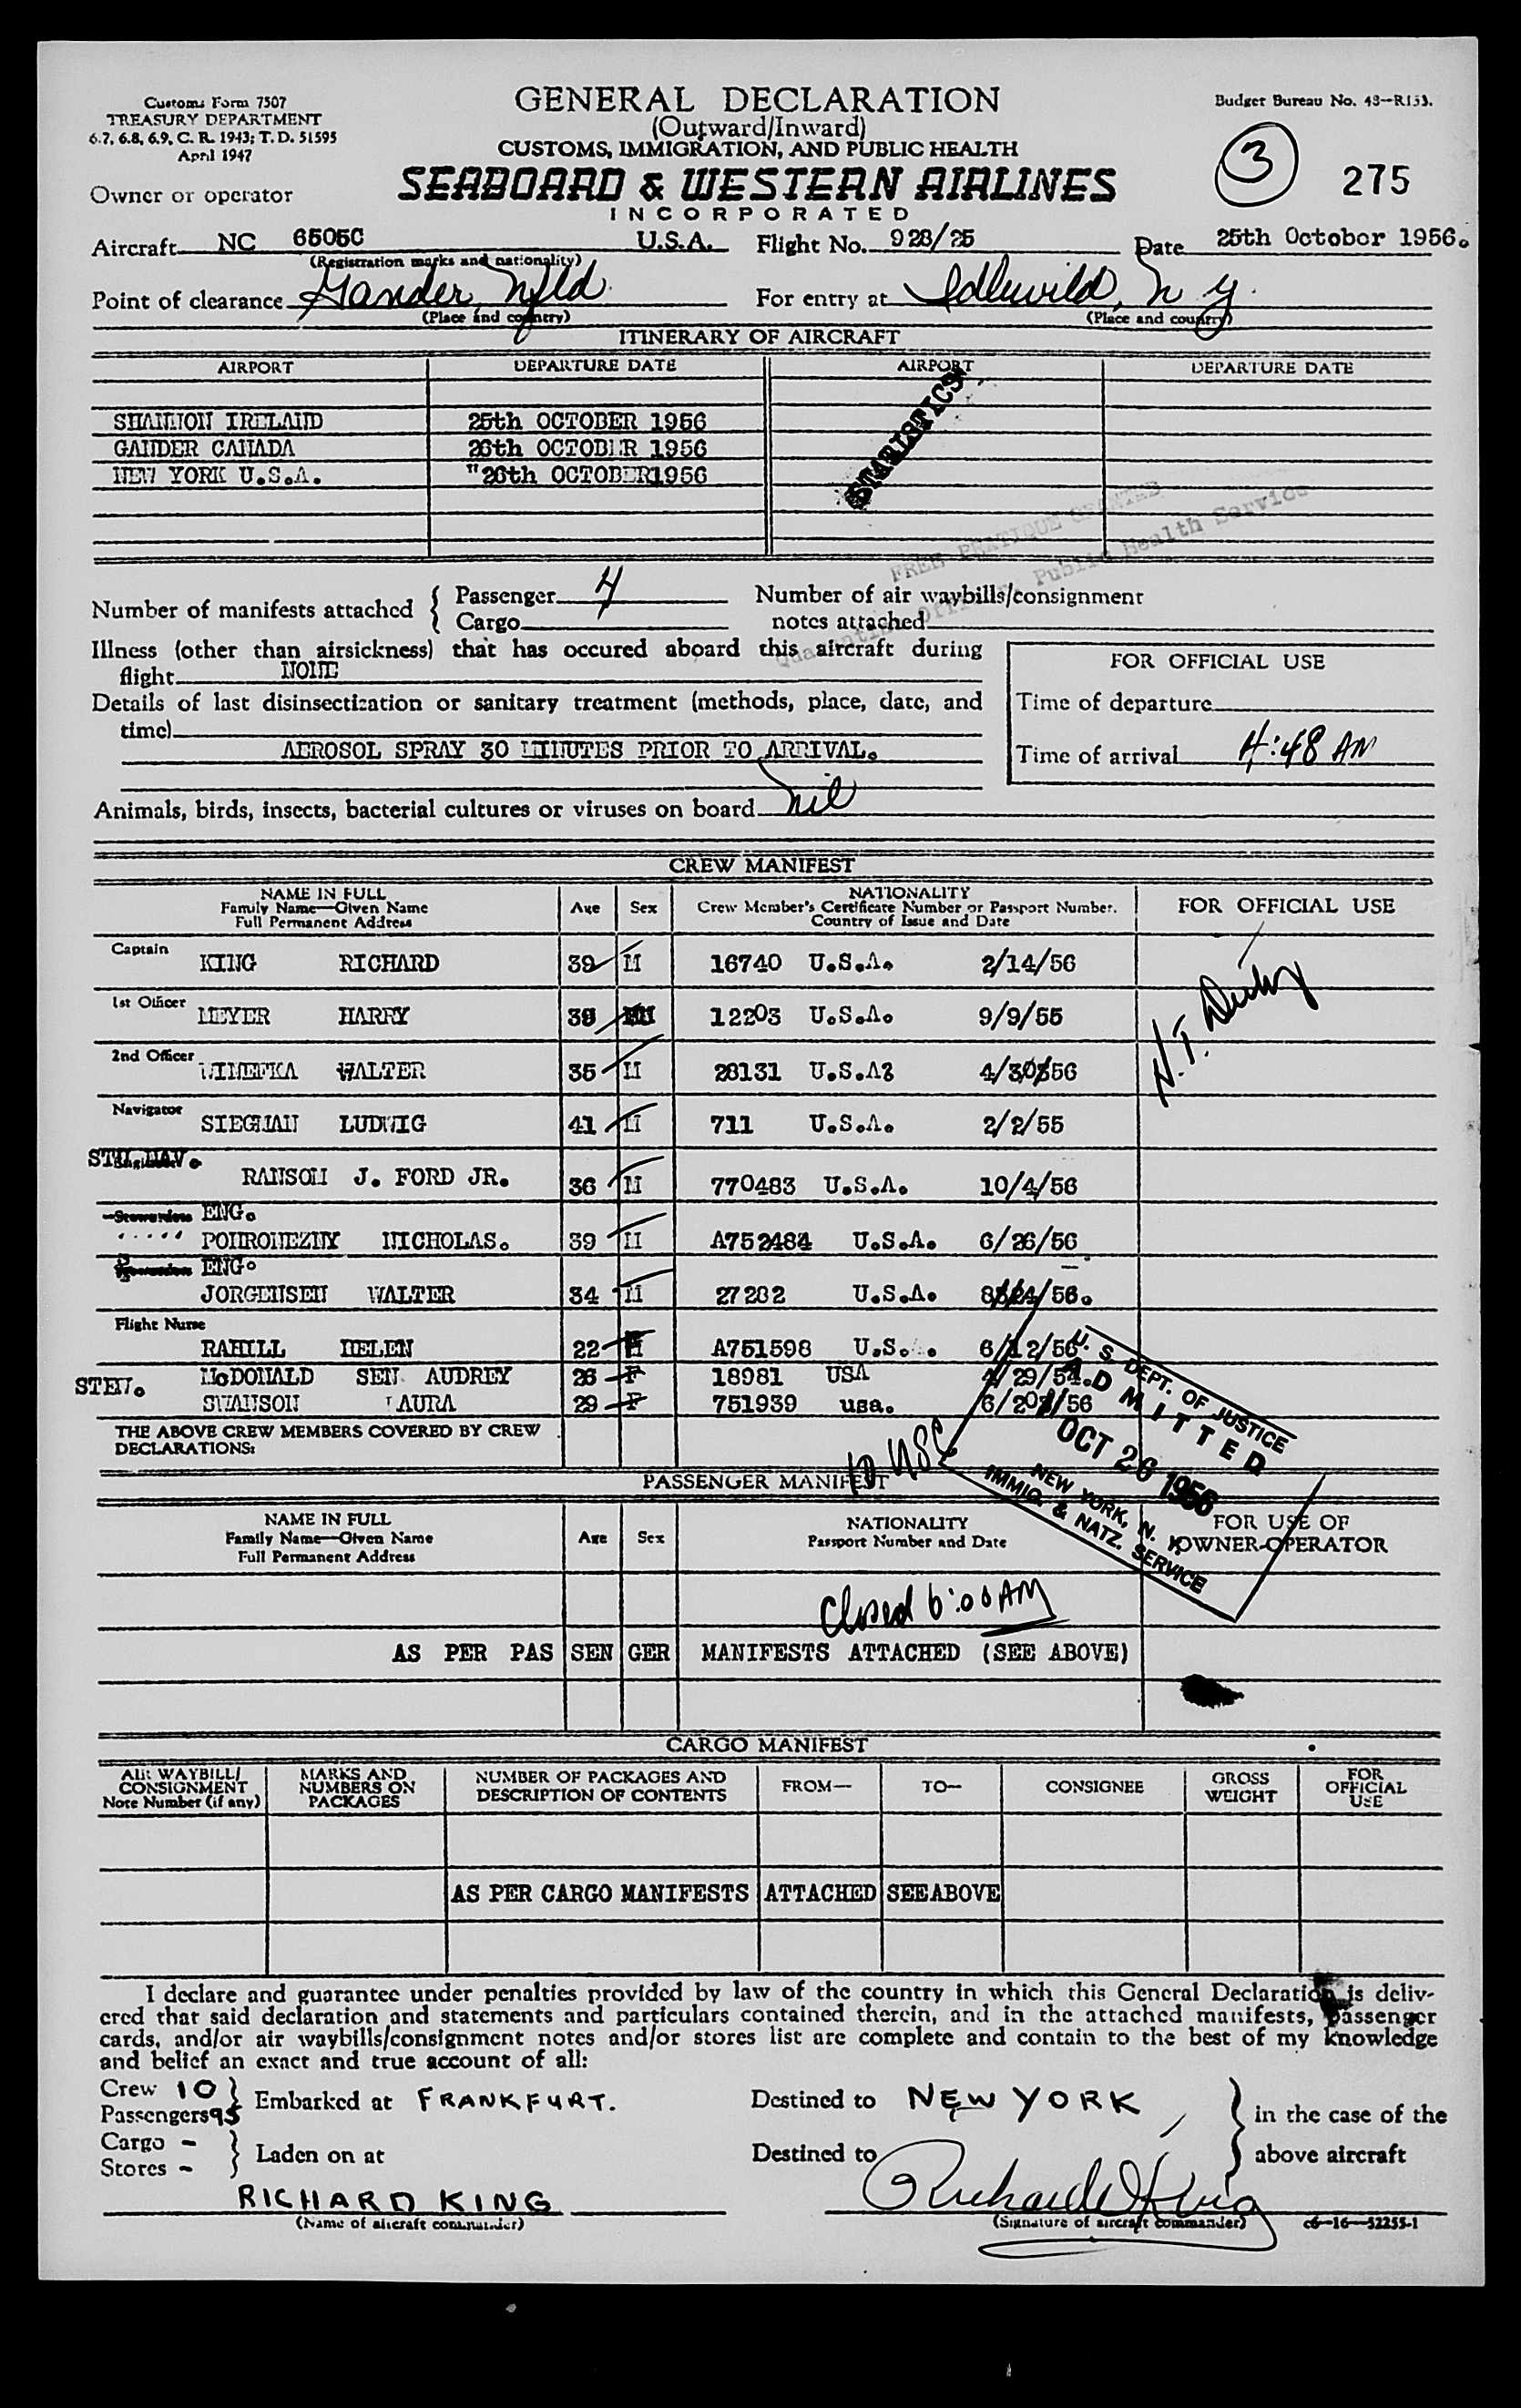 Customs Form 7507
TREASURY DEPARTMENT
6.7, 6.8, 6.9, C. R. 1943; T. D. 51595
April 1947
GENERAL DECLARATION
(Outward/Inward)
CUSTOMS, IMMIGRATION, AND PUBLIC HEALTH
Budget Bureau No. 43—R153.
3
275
Owner or operator
SEABOARD & WESTERN AIRLINES
INCORPORATED
Aircraft NC 6505C U.S.A. Flight No. 928/25 Date 25th October 1956.
(Registration marks and nationality)
Point of clearance Gander, Nfld For entry at Idlewild, N Y.
(Place and country) (Place and country)
ITINERARY OF AIRCRAFT
AIRPORT DEPARTURE DATE AIRPORT DEPARTURE DATE
SHANNON IRELAND 25th OCTOBER 1956
GANDER CANADA 26th OCTOBER 1956
NEW YORK U.S.A. "26th OCTOBER1956
STATISTICS
FREE PRATIQUE GRANTED
Quarantine Officer, Public Health Service
Number of manifests attached { Passenger 4
Cargo
Number of air waybills/consignment
notes attached
Illness (other than airsickness) that has occured aboard this aircraft during
flight NONE
Details of last disinsectization or sanitary treatment (methods, place, date, and
time)
AEROSOL SPRAY 30 MINUTES PRIOR TO ARRIVAL.
FOR OFFICIAL USE
Time of departure
Time of arrival 4:48 AM
Animals, birds, insects, bacterial cultures or viruses on board nil
CREW MANIFEST
NAME IN FULL
Family Name—Given Name
Full Permanent Address
Age Sex
NATIONALITY
Crew Member's Certificate Number or Passport Number.
Country of Issue and Date
FOR OFFICIAL USE
Captain KING RICHARD 39 M 16740 U.S.A. 2/14/56
1st Officer MEYER HARRY 39 12203 U.S.A. 9/9/55
2nd Officer WALTER 35 M 28131 U.S.A? 4/30/56
Navigator SIEGMAN LUDWIG 41 M 711 U.S.A. 2/2/55
STU. NAV.
RANSOM J. FORD JR. 36 M 770483 U.S.A. 10/4/56
ENG.
POHRONEZNY NICHOLAS. 39 M A752484 U.S.A. 6/26/56
ENG.
JORGENSEN WALTER 34 M 27282 U.S.A. 8/24/56.
Flight Nurse
RAHILL HELEN 22 A751598 U.S. . 6/12/56
STEW. McDONALD SEN AUDREY 26 F 18981 USA 4/29/54.
SWANSON LAURA 29 F 751939 usa. 6/20/56
THE ABOVE CREW MEMBERS COVERED BY CREW
DECLARATIONS:
10 USC
U. S. DEPT. OF JUSTICE
ADMITTED
OCT 26 1956
NEW YORK, N. Y.
IMMIG. & NATZ. SERVICE
PASSENGER MANIFEST
NAME IN FULL
Family Name—Given Name
Full Permanent Address
Age Sex
NATIONALITY
Passport Number and Date
FOR USE OF
OWNER-OPERATOR
Closed 6:00 AM
AS PER PAS SEN GER MANIFESTS ATTACHED (SEE ABOVE)
CARGO MANIFEST
AIR WAYBILL/
CONSIGNMENT
Note Number (if any)
MARKS AND
NUMBERS ON
PACKAGES
NUMBER OF PACKAGES AND
DESCRIPTION OF CONTENTS
FROM— TO— CONSIGNEE
GROSS
WEIGHT
FOR
OFFICIAL
USE
AS PER CARGO MANIFESTS ATTACHED SEEABOVE
I declare and guarantee under penalties provided by law of the country in which this General Declaration is deliv-
ered that said declaration and statements and particulars contained therein, and in the attached manifests, passenger
cards, and/or air waybills/consignment notes and/or stores list are complete and contain to the best of my knowledge
and belief an exact and true account of all:
Crew 10
Passengers 95
} Embarked at FRANKFURT. Destined to NEW YORK
Cargo -
Stores -
} Laden on at Destined to
} in the case of the
above aircraft
RICHARD KING Richard King
(Name of aircraft commander) (Signature of aircraft commander) c6—16—52255-1